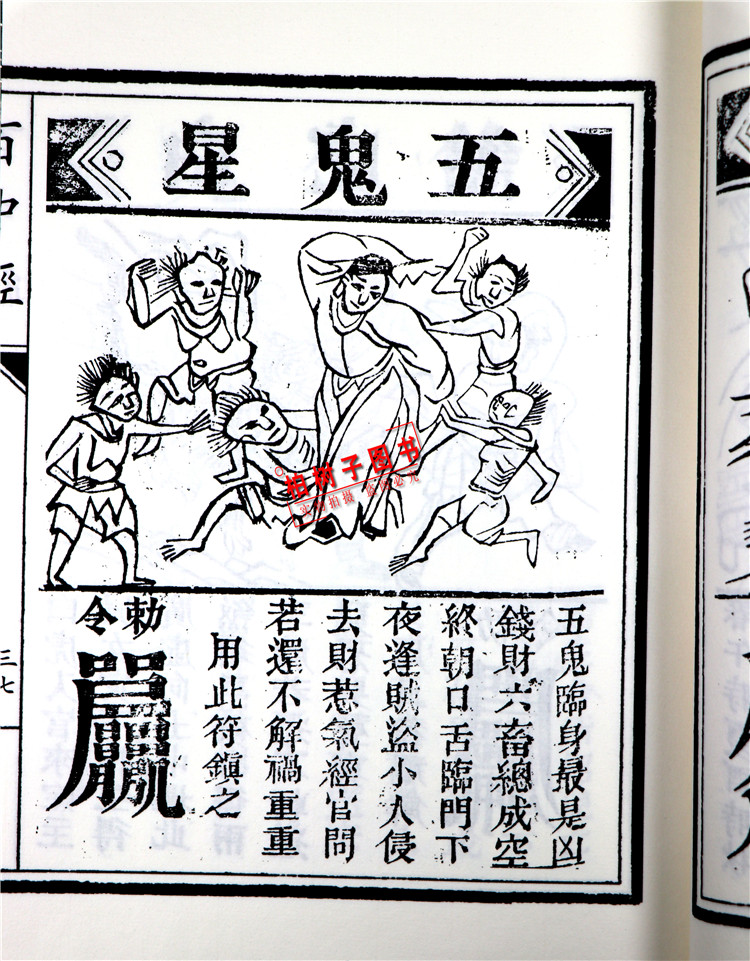 五鬼星
五鬼臨身最是凶
錢財六畜總成空
終朝口舌臨門下
夜逢賊盜小人侵
去財惹氣經官問
若還不解禍重重
用此符鎮之
勅令
三七
柏树子图书